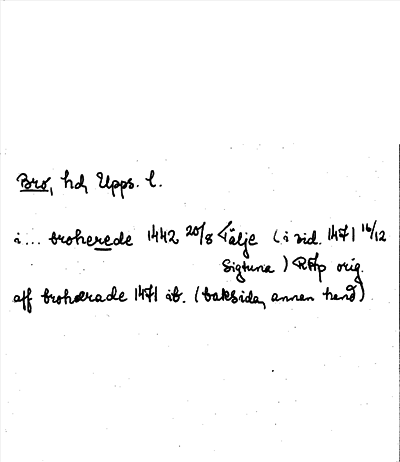 Bro, hd, Upps. l.
i... broherede 1442 20/8 Tälje (i vid. 1471 16/12
Sigtuna) RAp orig.
aff brohærade 1471 ib. (baksidan, annen hend)